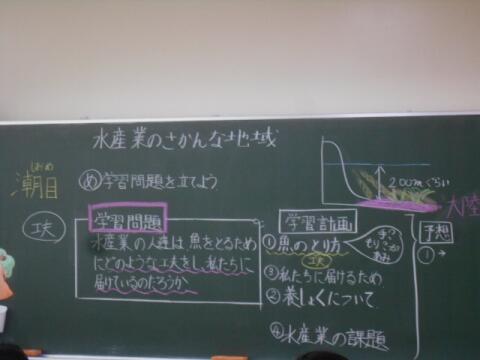 水産業のさかんな地域
しおめ
潮目
め 学習問題を立てよう
200mぐらい
大陸
工夫
学習問題
水産業の人達は魚をとるため
にどのような工夫をし、私たちに
届けているのだろうか
学習計画
①魚のとり方
工夫
あみ
③私たちに届けるため
②養しょくについて
④水産業の課題
予想
①→